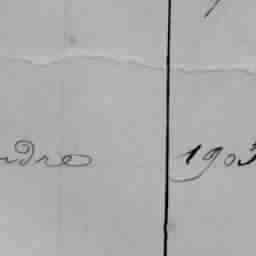 ndre 1903